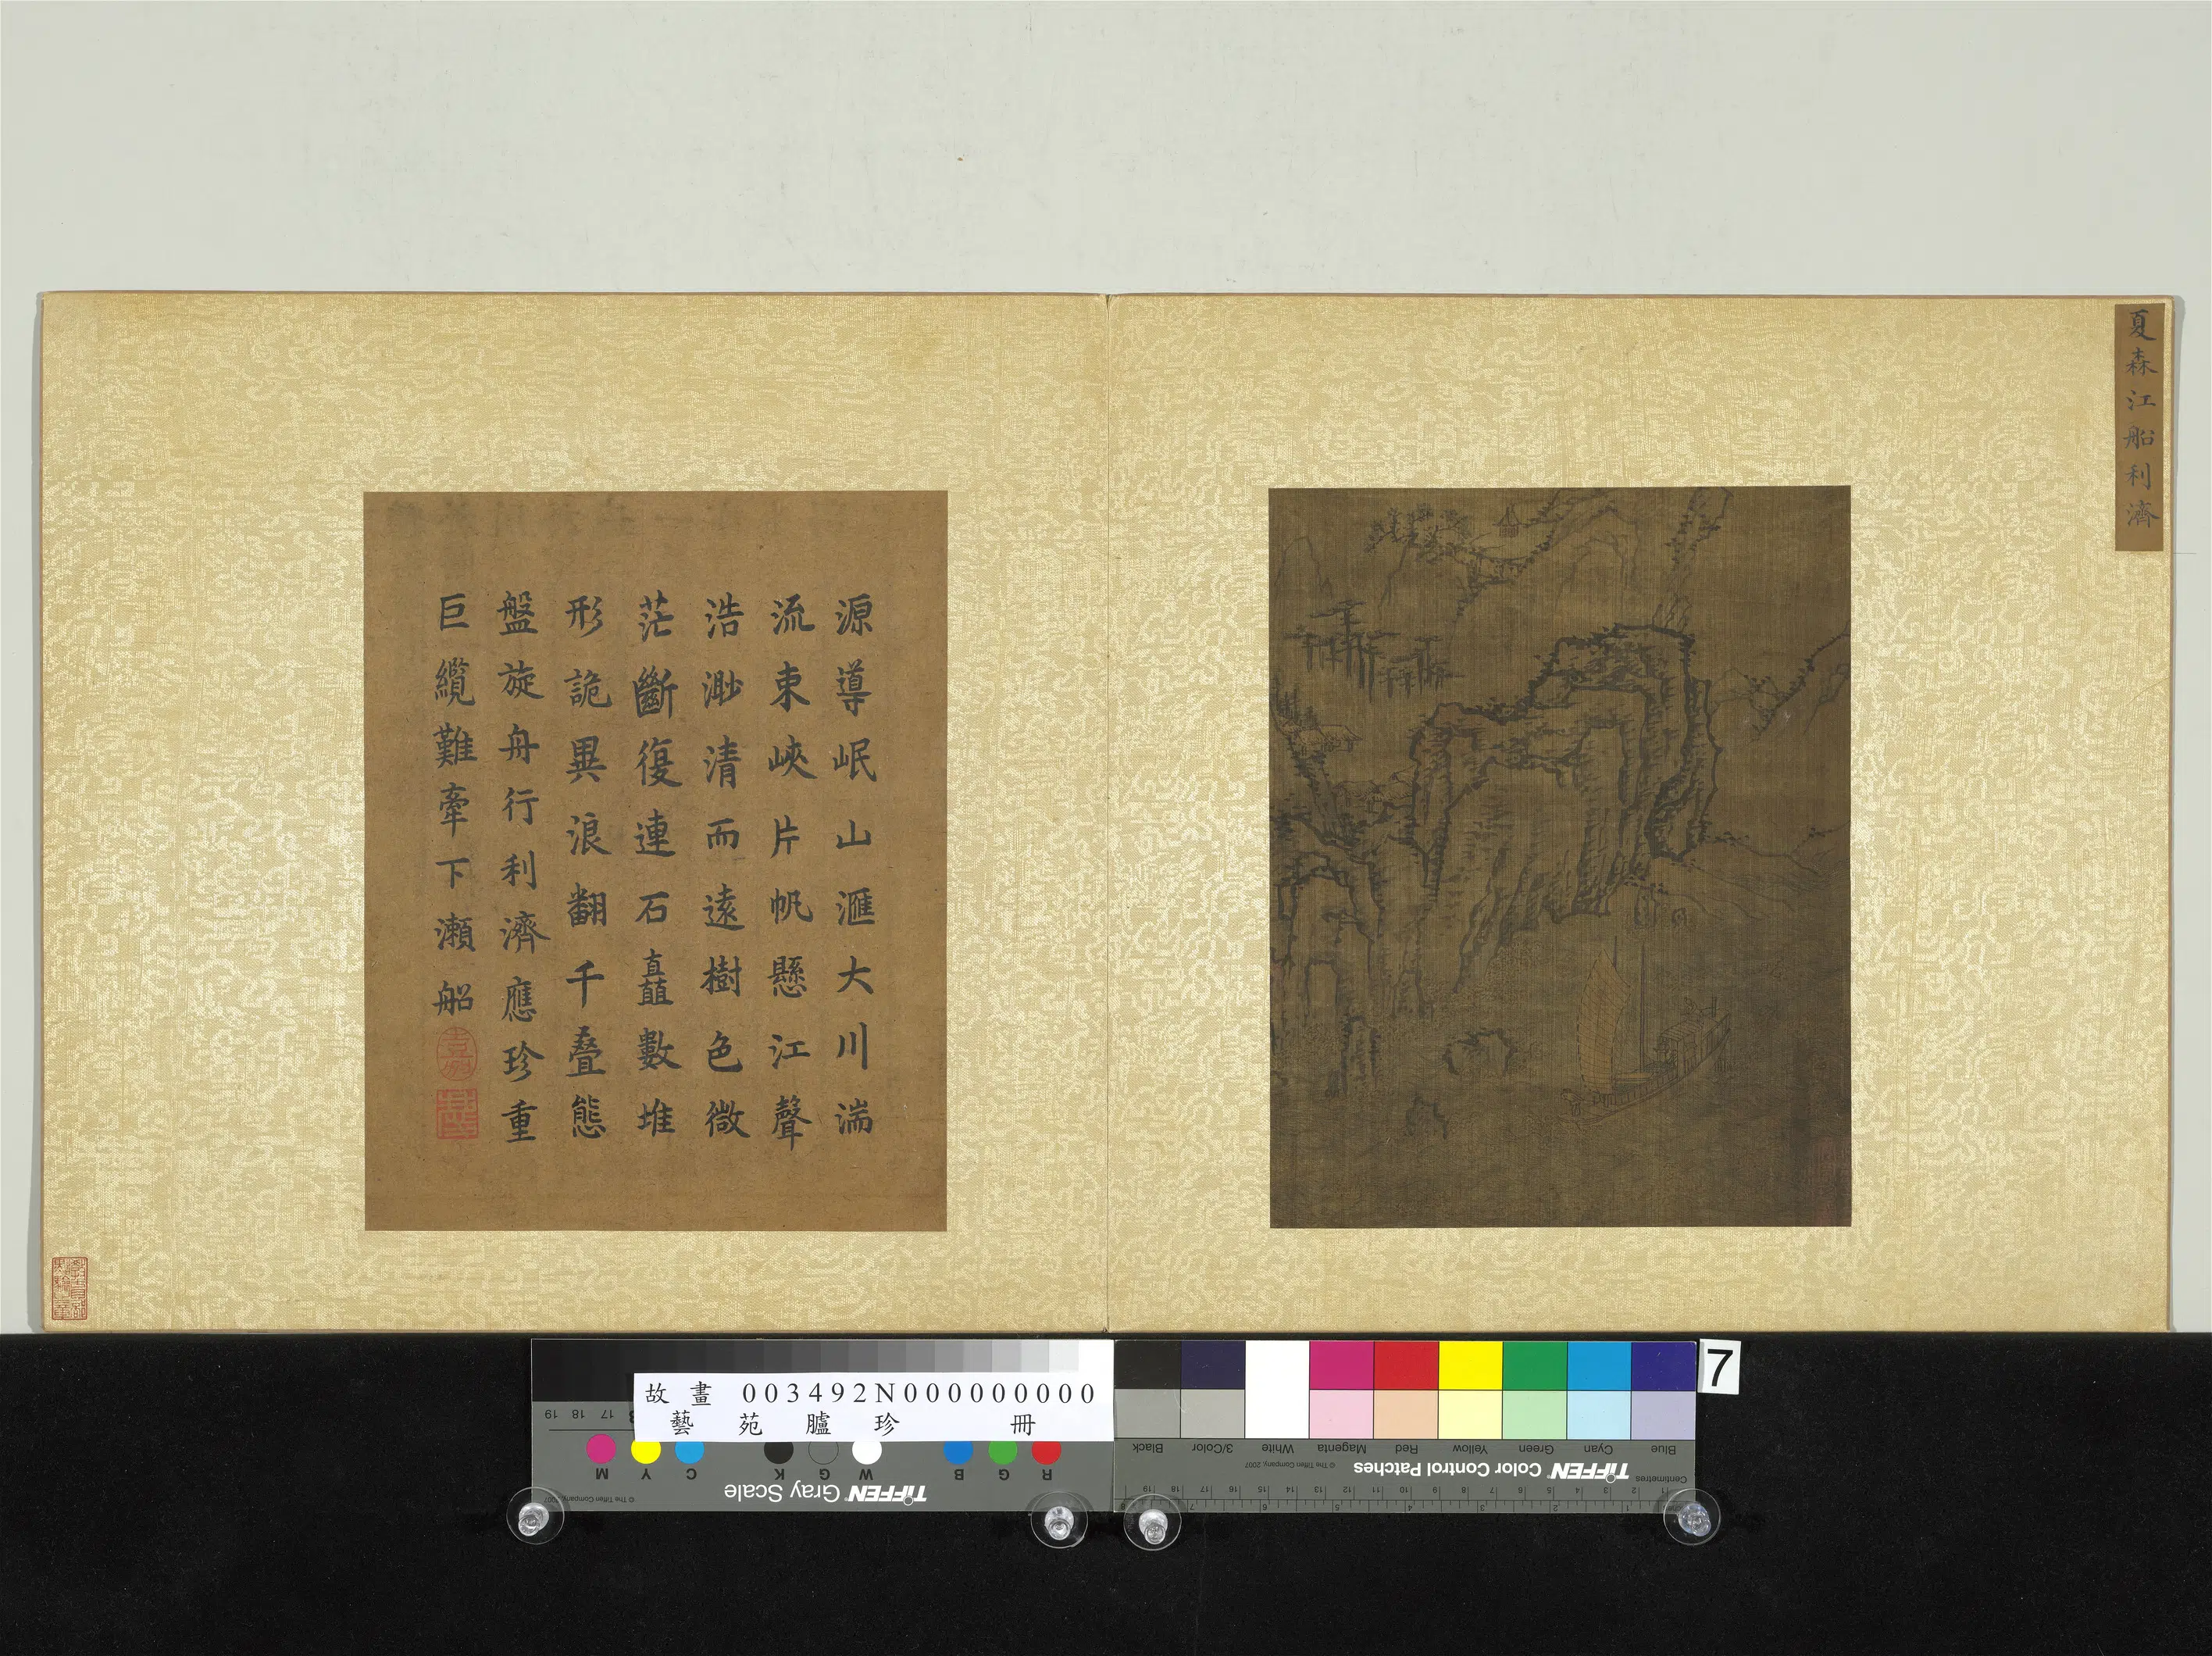 夏森江船利濟
源導岷山滙大川湍
流束峽片帆懸江聲
浩渺清而遠樹色微
茫斷復連石矗數堆
形詭異浪翻千疊態
盤旋舟行利濟應珍重
巨纜難牽下瀨船
7
故畫 003492N000000000
藝苑臚珍 冊
19 18 17
M Y C K G W B G R
TIFFEN Gray Scale
© The Tiffen Company, 2007
Blue Cyan Green Yellow Red Magenta White 3/Color Black
TIFFEN Color Control Patches
© The Tiffen Company, 2007
Centimetres
1 2 3 4 5 6 7 8 9 10 11 12 13 14 15 16 17 18 19
1 2 3 4 5 6 7 8